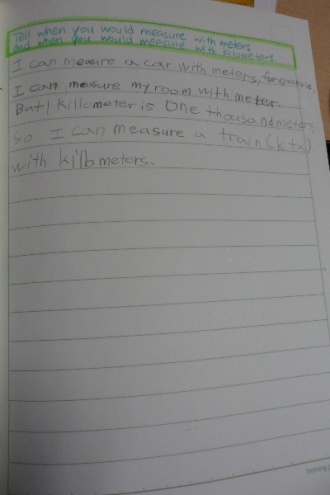 Tell when you would measure with meters
and when you would measure with kilometers.
I can measure a car with meters, for example,
I can measure my room with meter.
But 1 killometer is one thousand meters
So I can measure a train (ktx)
with kilometers.